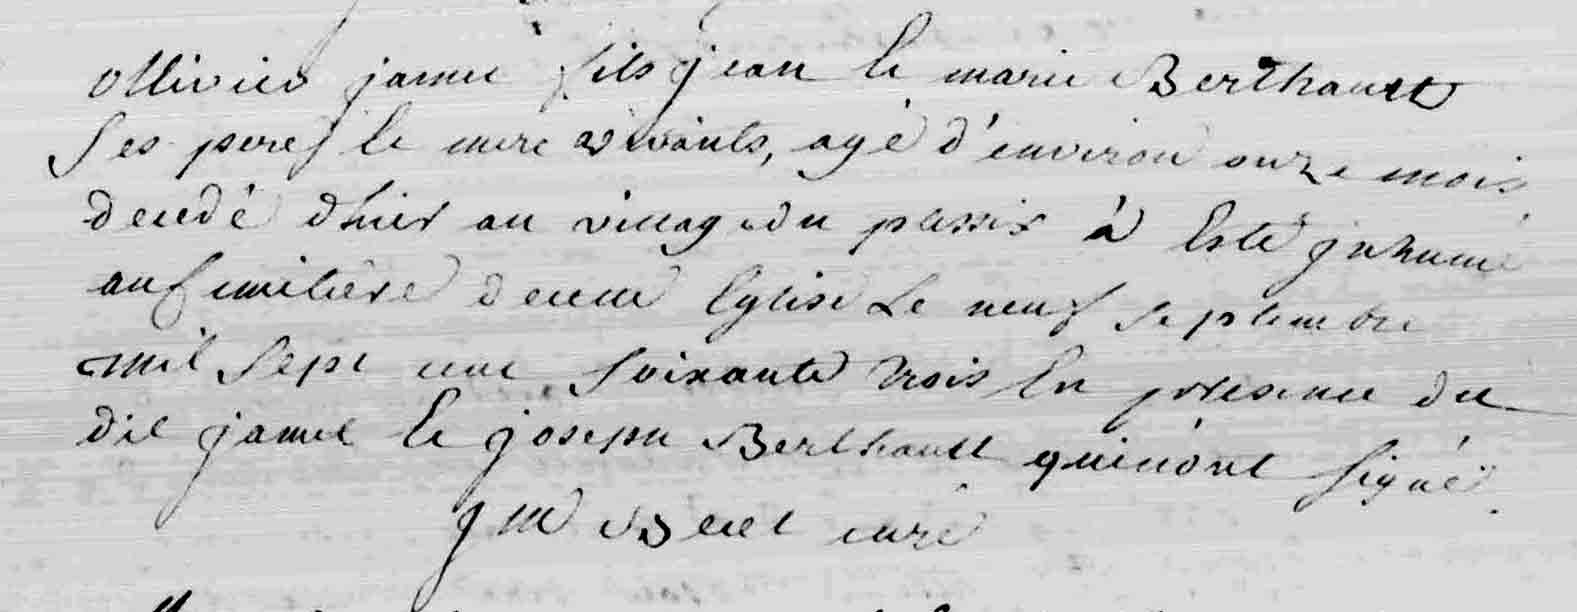 ollivier jamet fils jean Et marie Berthault
Ses peres Et mere vivants, agé d'environ onze mois
decedé d'hier au village du plessix à Esté jnhumé
au Cimitiere de cette Eglise Le neuf septembre
mil Sept cent Soixante trois En presence du
dit jamet Et joseph Berthault qui n'ont signé.
curé